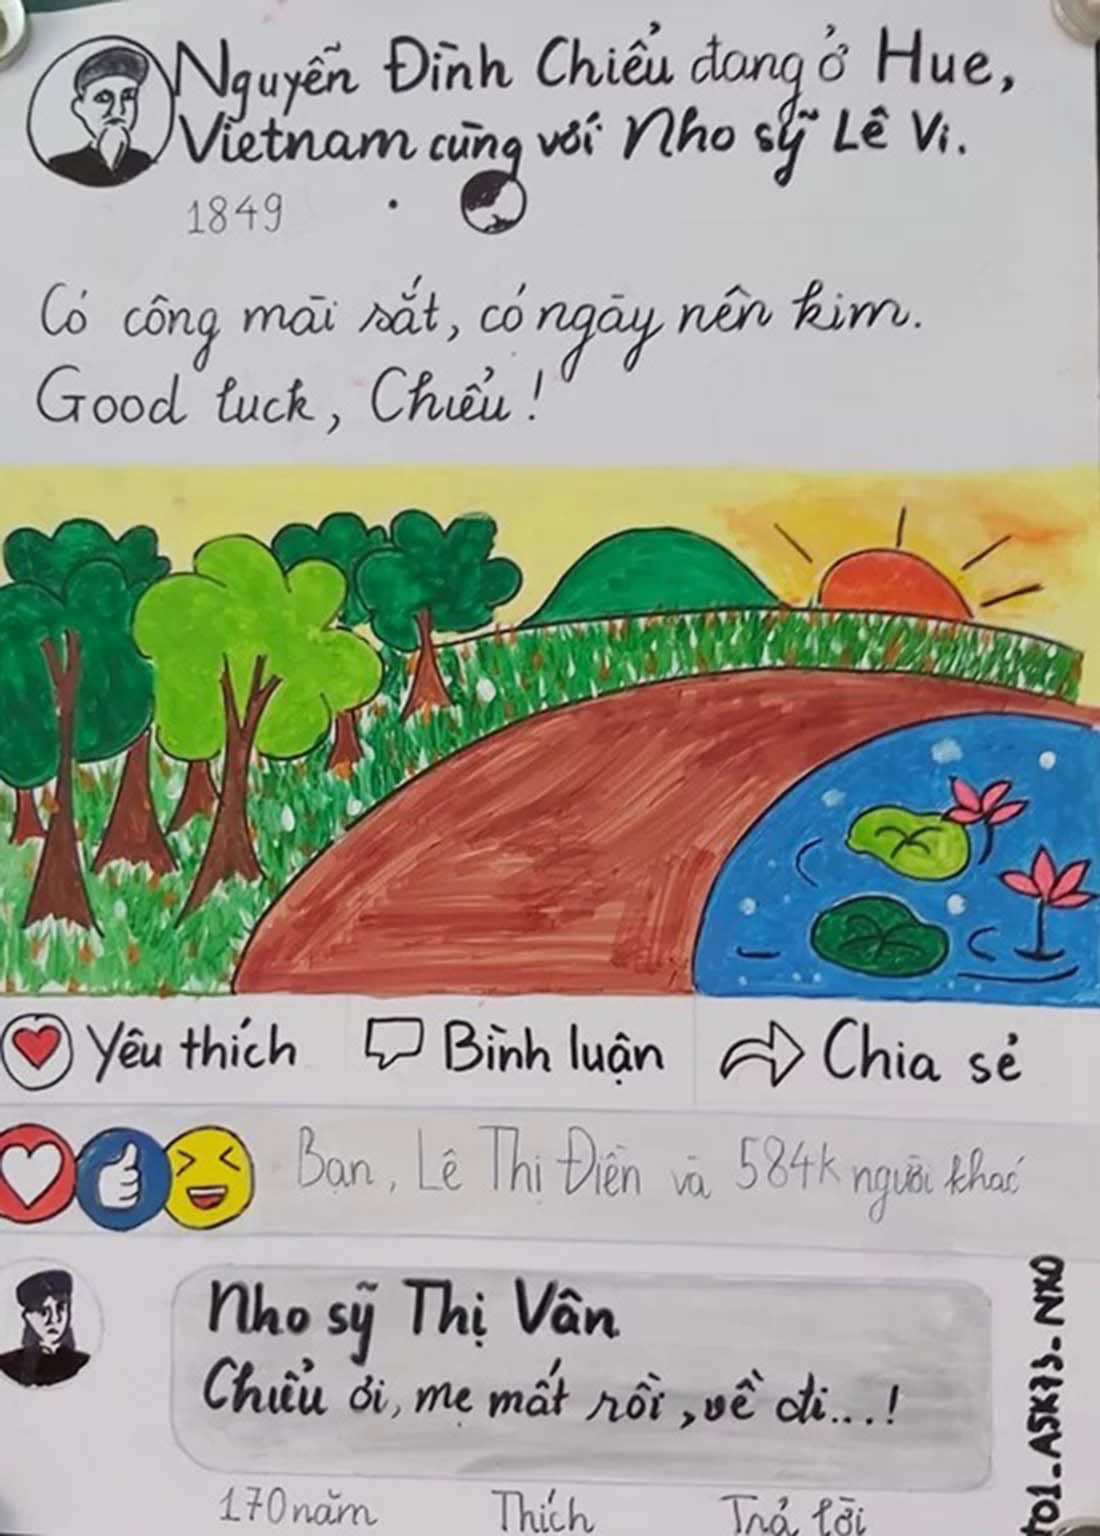 Nguyễn Đình Chiểu đang ở Hue,
Vietnam cùng với Nho sỹ Lê Vi.
1849
Có công mài sắt, có ngày nên kim.
Good luck, Chiểu!
Yêu thích Bình luận Chia sẻ
Bạn, Lê Thị Điền và 584k người khác
Nho sỹ Thị Vân
Chiểu ơi, mẹ mất rồi, về đi...!
170 năm Thích Trả lời